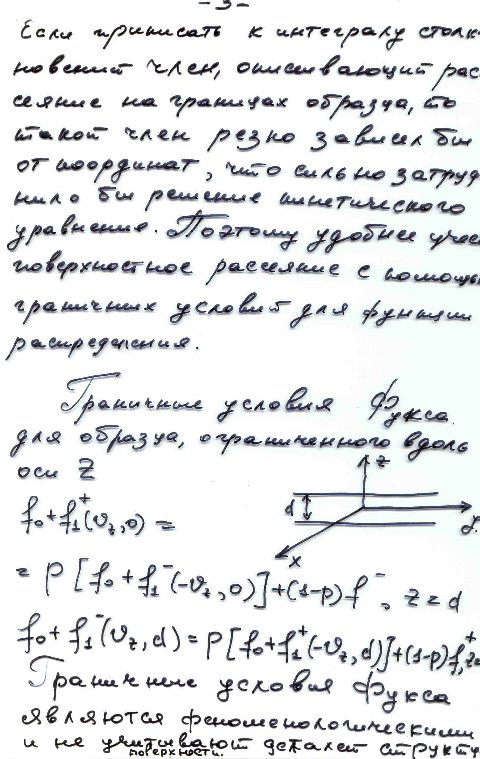 -3-
Если приписать к интегралу столк
новений член, описывающий рас
сеяние на границах образца, то
такой член резко зависел бы
от координат, что сильно затруд
нило бы решение кинетического
уравнения. Поэтому удобнее учес
поверхностное рассеяние с помощь
граничных условий для функции
распределения.
Граничные условия Фукса
для образца, ограниченного вдоль
оси Z
z
d
x
f₀+f₁⁺(v_z,0) =
= p[f₀+f₁⁻(-v_z,0)]+(1-p)f⁻, z=d
f₀+f₁⁻(v_z,d)=p[f₀+f₁⁺(-v_z,d)]+(1-p)f⁺, z=
Граничные условия Фукса
являются феноменологическими
и не учитывают деталей структу
поверхности.